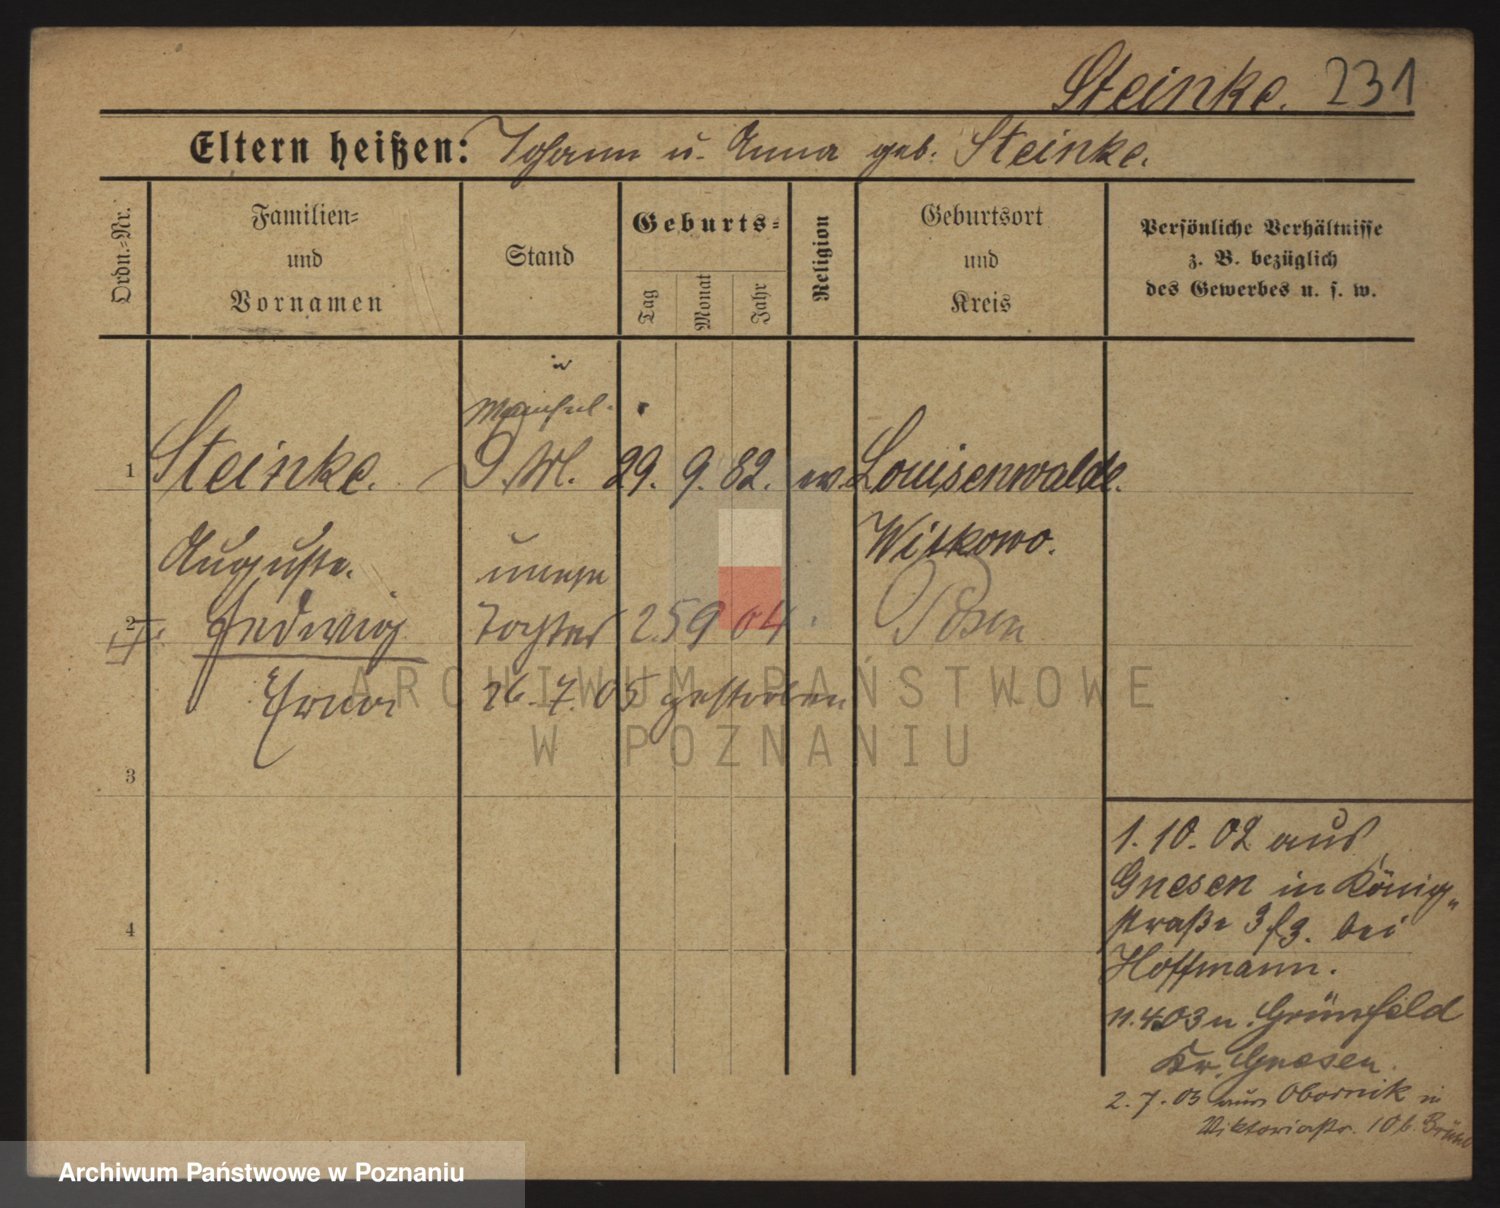 Steinke. 231
Eltern heißen: Johann u. Anna geb. Steinke.
Ordn.-Nr.
Familien-
und
Vornamen
Stand
Geburts-
Tag
Monat
Jahr
Religion
Geburtsort
und
Kreis
Persönliche Verhältnisse
z. B. bezüglich
des Gewerbes u. s. w.
1 Steinke. D. M. 29. 9. 82. ev. Louisenwalde.
Auguste. Witkowo.
unehe
2 Hedwig Tochter 25 9 04 Posen
Erna 26.7.05 gestorben
3
4
1. 10. 02 aus
Gnesen in König-
straße 3 bei
Hoffmann.
11.4.03 n. Grünfeld
Kr. Gnesen.
2.7.03 aus Obornik in
Viktoriastr. 10
ARCHIWUM PAŃSTWOWE
W POZNANIU
Archiwum Państwowe w Poznaniu